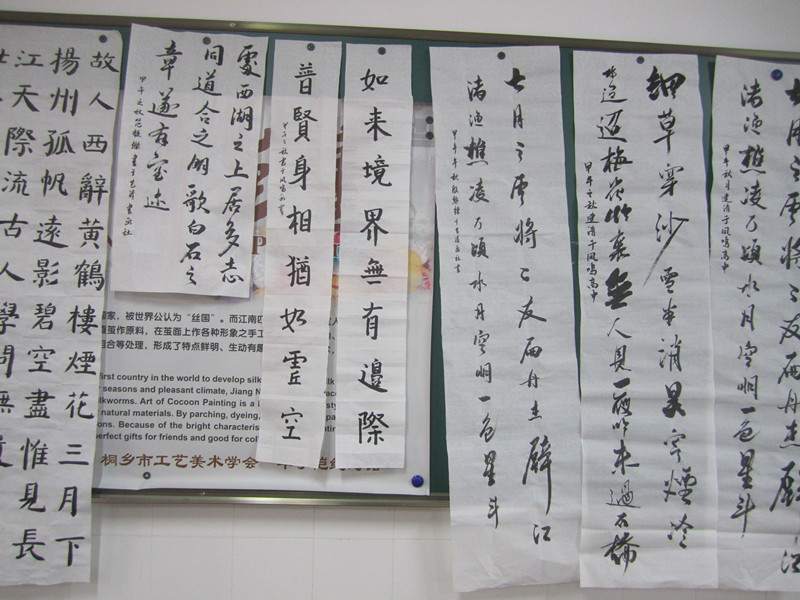 故人西辭黃鶴樓煙花三月下
揚州孤帆遠影碧空盡惟見長
江天際流古人學問無
處西湖之上居多志
同道合之朋歌白石之
章遂有宝迹
如来境界無有邊際
普賢身相猶如虛空
七月之望將二友扁舟赤壁江
清漁樵凌万頃水月空明一色星斗
細草穿沙雪半消吴宮煙冷
水迢迢梅花竹裏無人見一夜吹香過石橋
甲午之秋建清于鳳鳴高中
七月之望將二友扁舟赤壁江
清漁樵凌万頃水月空明一色星斗
甲午秋月建清于鳳鳴高中
家，被世界公认为“丝国”。而江南四
茧作原料，在茧面上作各种形象之手工
组合等处理，形成了特点鲜明、生动有趣
first country in the world to develop silk
seasons and pleasant climate, Jiang N
silkworms. Art of Cocoon Painting is a
natural materials. By parching, dyeing,
ons. Because of the bright characteris
perfect gifts for friends and good for col
桐乡市工艺美术学会